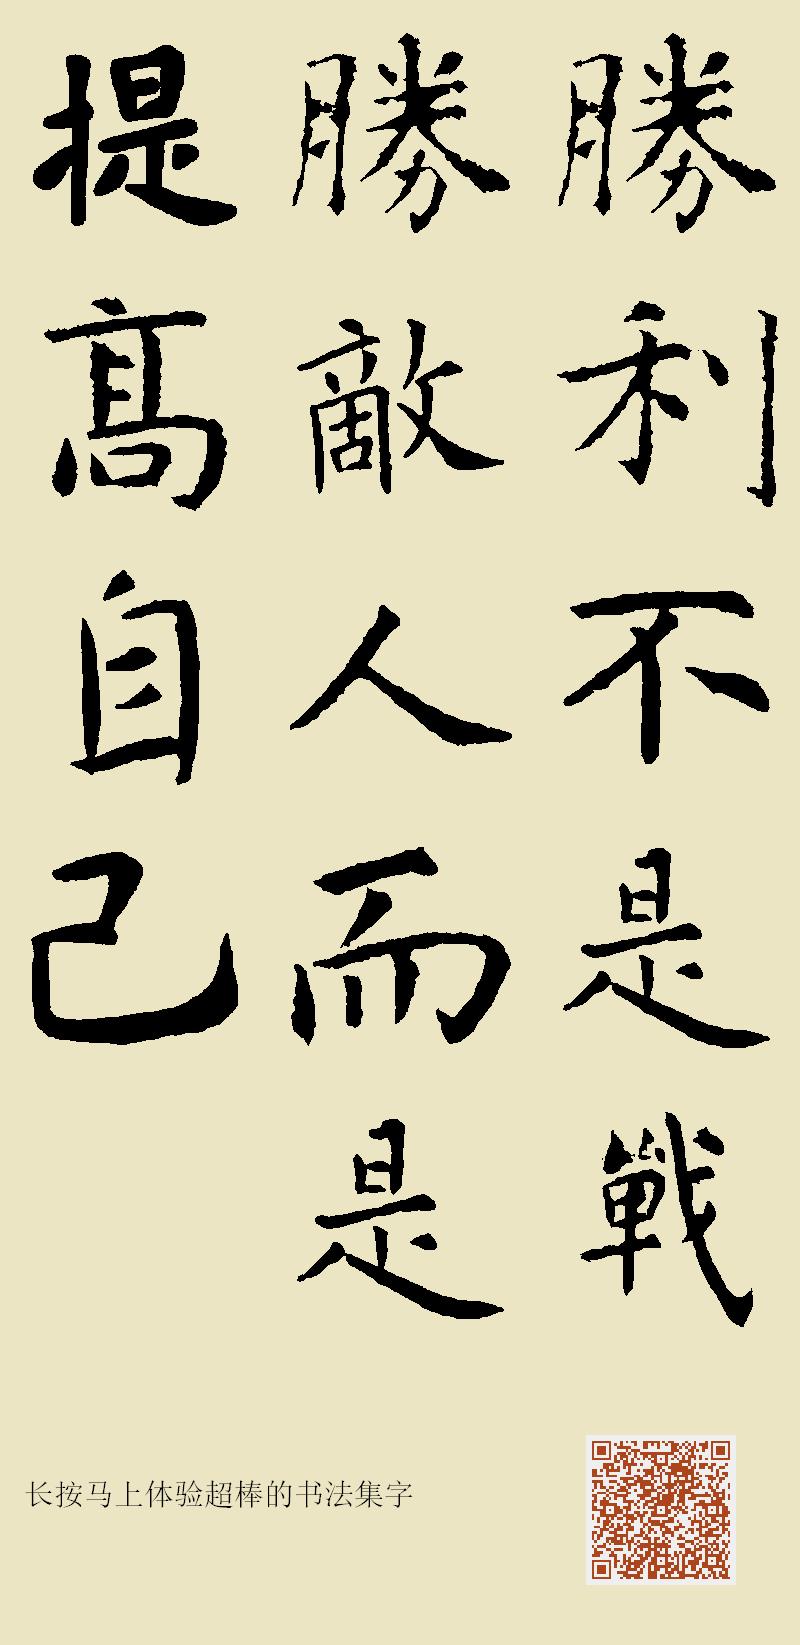 勝利不是戰
勝敵人而是
提高自己
长按马上体验超棒的书法集字